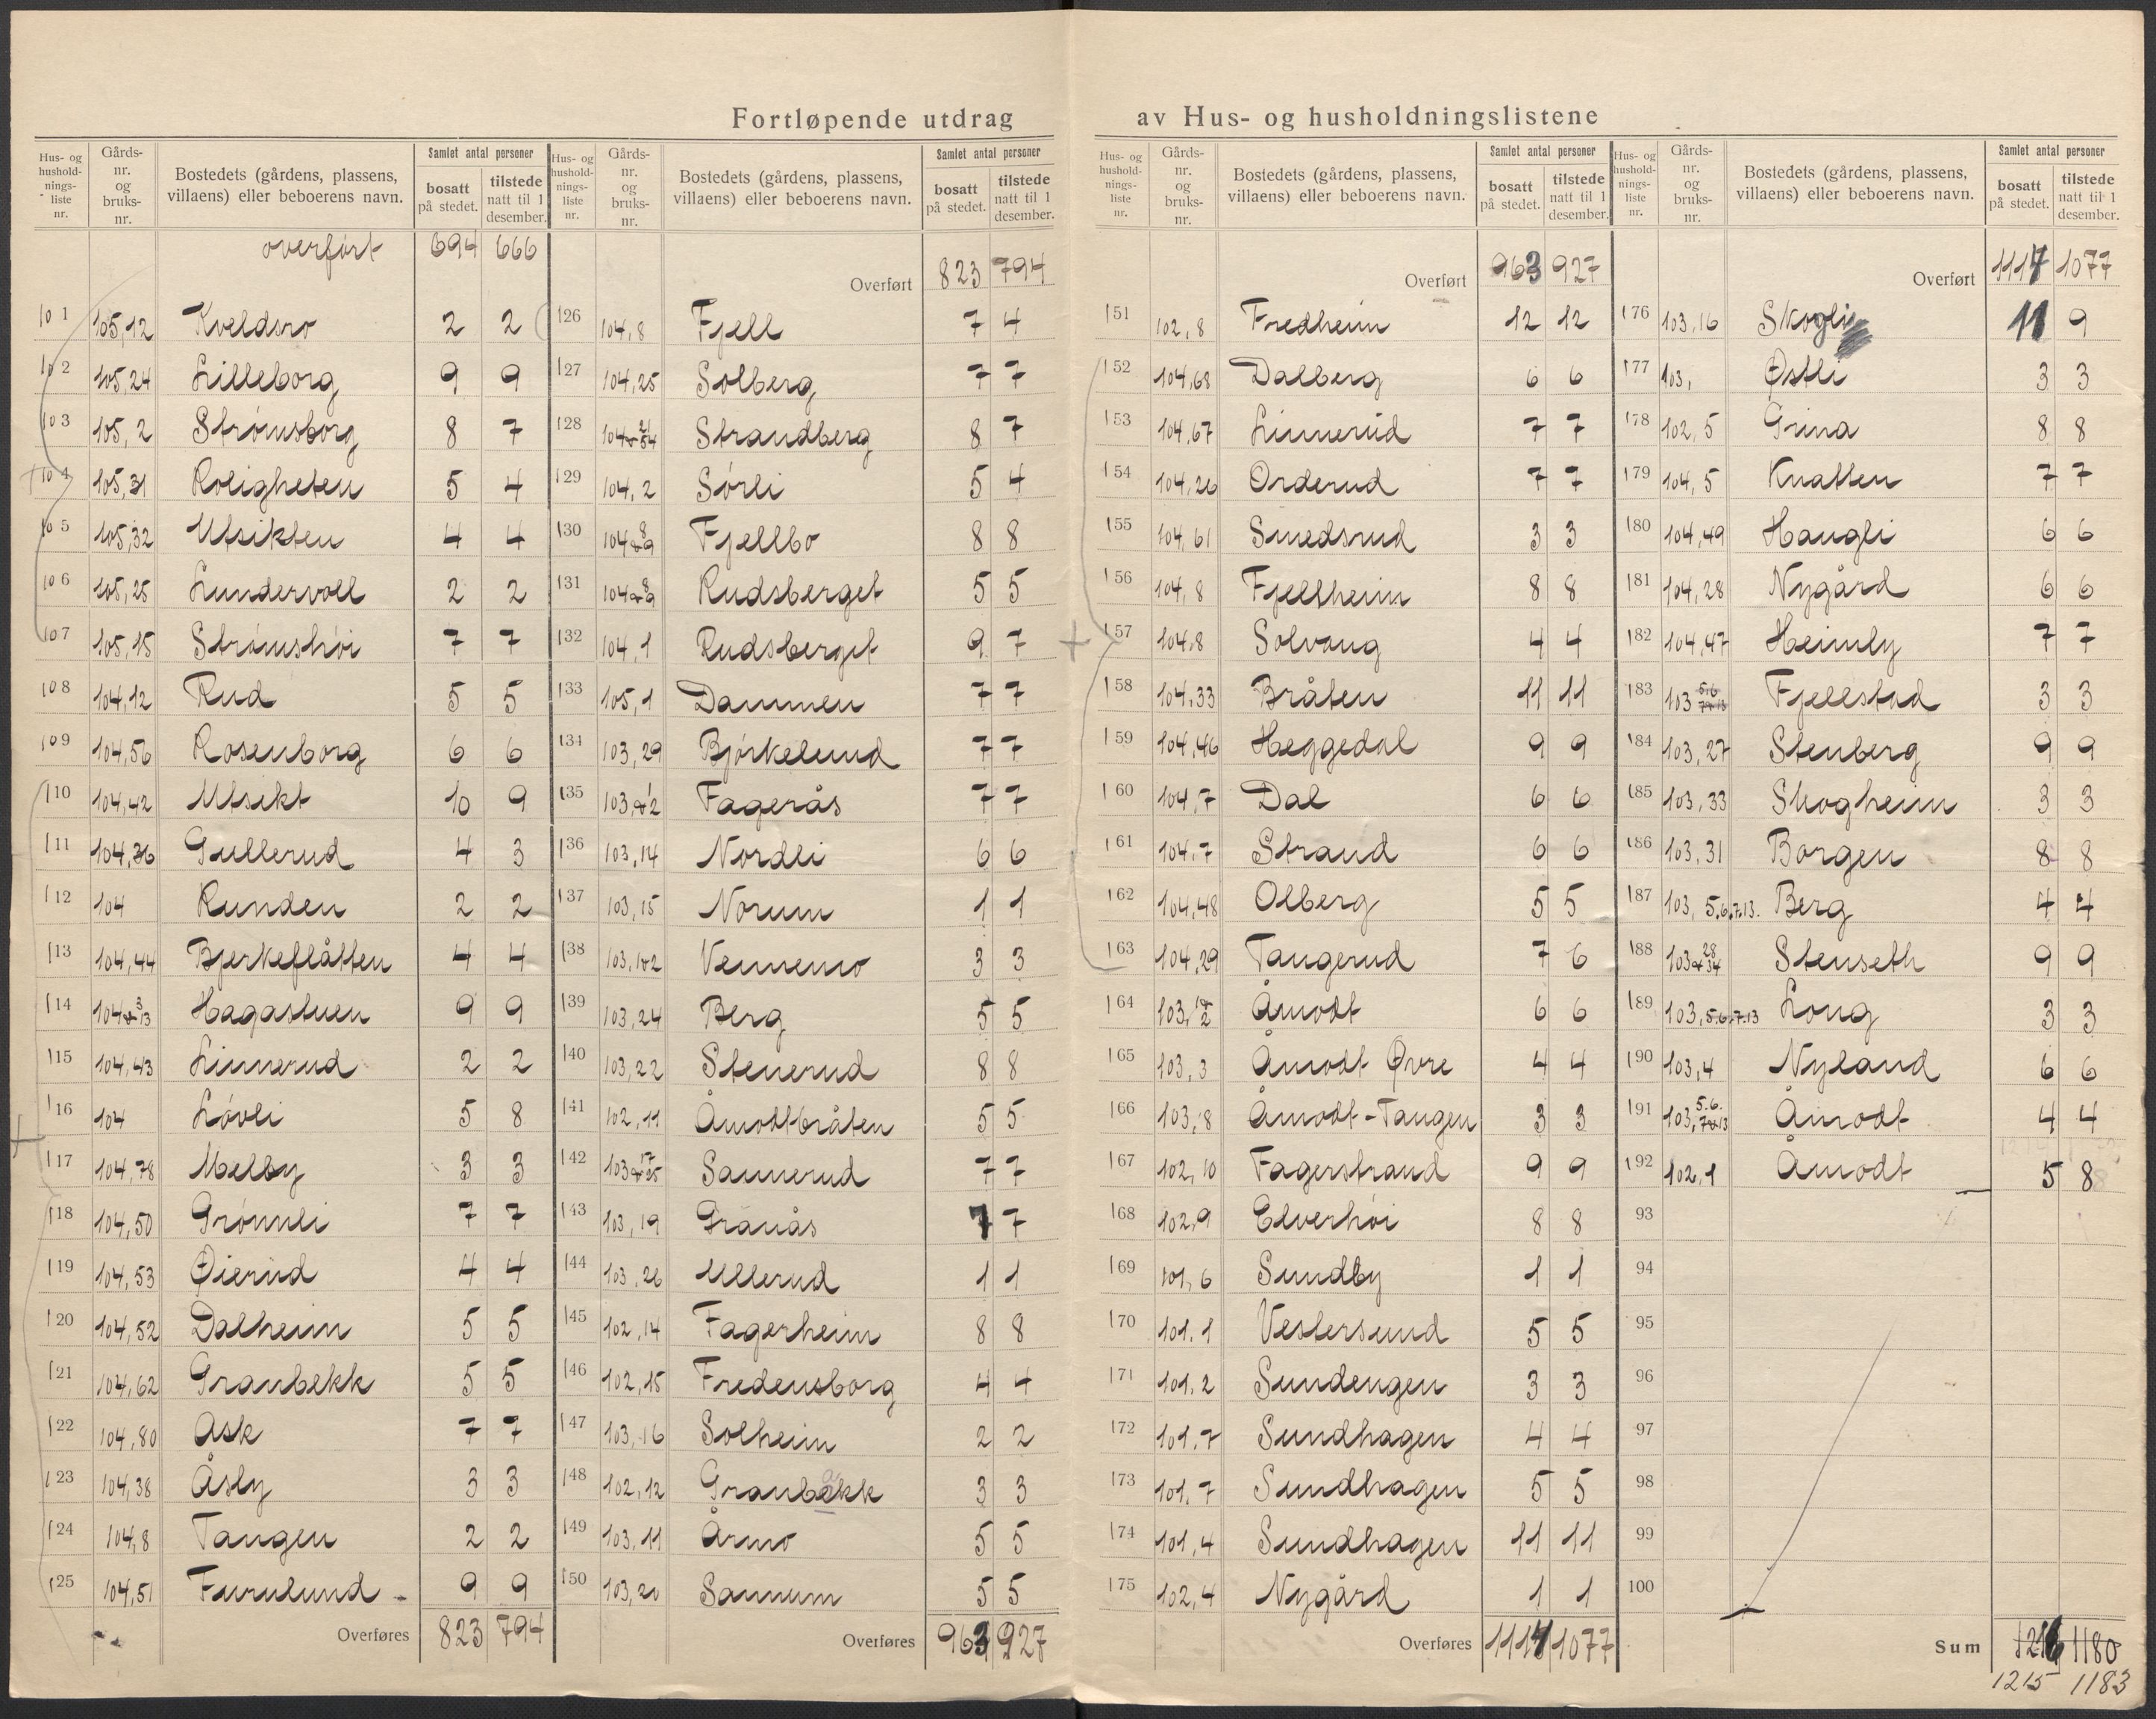 Fortløpende utdrag av Hus- og husholdningslistene
Hus- og hushold- nings- liste nr. Gårds- nr. og bruks- nr. Bostedets (gårdens, plassens, villaens) eller beboerens navn. Samlet antal personer bosatt på stedet. tilstede natt til 1 desember.
overført 694 666
101 105,12 Kveldsro 2 2
102 105,24 Lilleborg 9 9
103 105,2 Strømsborg 8 7
104 105,31 Roligheten 5 4
105 105,32 Utsikten 4 4
106 105,25 Lundervoll 2 2
107 105,15 Strømshøi 7 7
108 104,12 Rud 5 5
109 104,56 Rosenborg 6 6
110 104,42 Utsikt 10 9
111 104,36 Gullerud 4 3
112 104 Runden 2 2
113 104,44 Bjerkeflåtten 4 4
114 104 3 & 13 Hagastuen 9 9
115 104,43 Linnerud 2 2
116 104 Løvli 5 8
117 104,78 Melby 3 3
118 104,50 Grønnli 7 7
119 104,53 Øierud 4 4
120 104,52 Dalheim 5 5
121 104,62 Granbekk 5 5
122 104,80 Ask 7 7
123 104,38 Åsly 3 3
124 104,8 Tangen 2 2
125 104,51 Furulund 9 9
Overføres 823 794
Hus- og hushold- nings- liste nr. Gårds- nr. og bruks- nr. Bostedets (gårdens, plassens, villaens) eller beboerens navn. Samlet antal personer bosatt på stedet. tilstede natt til 1 desember.
Overført 823 794
126 104,8 Fjell 7 4
127 104,25 Solberg 7 7
128 104 21 & 54 Strandberg 8 7
129 104,2 Sørli 5 4
130 104 8 & 9 Fjellbo 8 8
131 104 8 & 9 Rudsberget 5 5
132 104,1 Rudsberget 9 7
133 105,1 Dammen 7 7
134 103,29 Bjørkelund 7 7
135 103,1&2 Fagerås 7 7
136 103,14 Nordli 6 6
137 103,15 Norum 1 1
138 103,1&2 Vennemo 3 3
139 103,24 Berg 5 5
140 103,22 Stenerud 8 8
141 102,11 Åmodtbråten 5 5
142 103 17 & 25 Sannerud 7 7
143 103,19 Granås 7 7
144 103,26 Ullerud 1 1
145 102,14 Fagerheim 8 8
146 102,15 Fredensborg 4 4
147 103,16 Solheim 2 2
148 102,12 Granbekk 3 3
149 103,11 Årmo 5 5
150 103,20 Sannum 5 5
Overføres 963 927
Hus- og hushold- nings- liste nr. Gårds- nr. og bruks- nr. Bostedets (gårdens, plassens, villaens) eller beboerens navn. Samlet antal personer bosatt på stedet. tilstede natt til 1 desember.
Overført 963 927
151 102,8 Fredheim 12 12
152 104,68 Dalberg 6 6
153 104,67 Linnerud 7 7
154 104,26 Orderud 7 7
155 104,61 Smedsrud 3 3
156 104,8 Fjellheim 8 8
157 104,8 Solvang 4 4
158 104,33 Bråten 11 11
159 104,46 Heggedal 9 9
160 104,7 Dal 6 6
161 104,7 Strand 6 6
162 104,48 Olberg 5 5
163 104,29 Tangerud 7 6
164 103,1&2 Åmodt 6 6
165 103,3 Åmodt Øvre 4 4
166 103,8 Åmodt-Tangen 3 3
167 102,10 Fagerstrand 9 9
168 102,9 Elverhøi 8 8
169 101,6 Sundby 1 1
170 101,1 Vestersund 5 5
171 101,2 Sundengen 3 3
172 101,7 Sundhagen 4 4
173 101,7 Sundhagen 5 5
174 101,4 Sundhagen 11 11
175 102,4 Nygård 1 1
Overføres 1117 1077
Hus- og hushold- nings- liste nr. Gårds- nr. og bruks- nr. Bostedets (gårdens, plassens, villaens) eller beboerens navn. Samlet antal personer bosatt på stedet. tilstede natt til 1 desember.
Overført 1117 1077
176 103,16 Skogli 11 9
177 103, Østli 3 3
178 102,5 Grina 8 8
179 104,5 Knatten 7 7
180 104,49 Haugli 6 6
181 104,28 Nygård 6 6
182 104,47 Heimly 7 7
183 103 5.6 7&13 Fjellstad 3 3
184 103,27 Stenberg 9 9
185 103,33 Skogheim 3 3
186 103,31 Borgen 8 8
187 103, 5.6.7.13. Berg 4 4
188 103 28 & 34 Stenseth 9 9
189 103,5.6.7.13 Long 3 3
190 103,4 Nyland 6 6
191 103, 5.6. 7&13 Åmodt 4 4
192 102,1 Åmodt 5 8
93
94
95
96
97
98
99
100
Sum 1216 1180
1215 1183